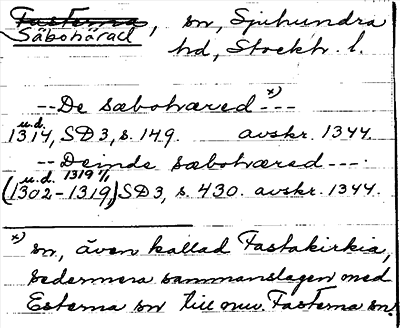 Fasterna, sn, Sjuhundra
Säbohärad hd, Stockh. l.
--De sæbohæred--- x)
u.d.
1314, SD3, s. 149. avskr. 1344.
--Demde sæbohæred----
u.d. 1319 1/1
(1302-1319,) SD3, s. 430. avskr. 1344.
x) sn, även kallad Fastakirkia,
sedermera sammanslagen med
Esterna sn till nuv. Fasterna sn.